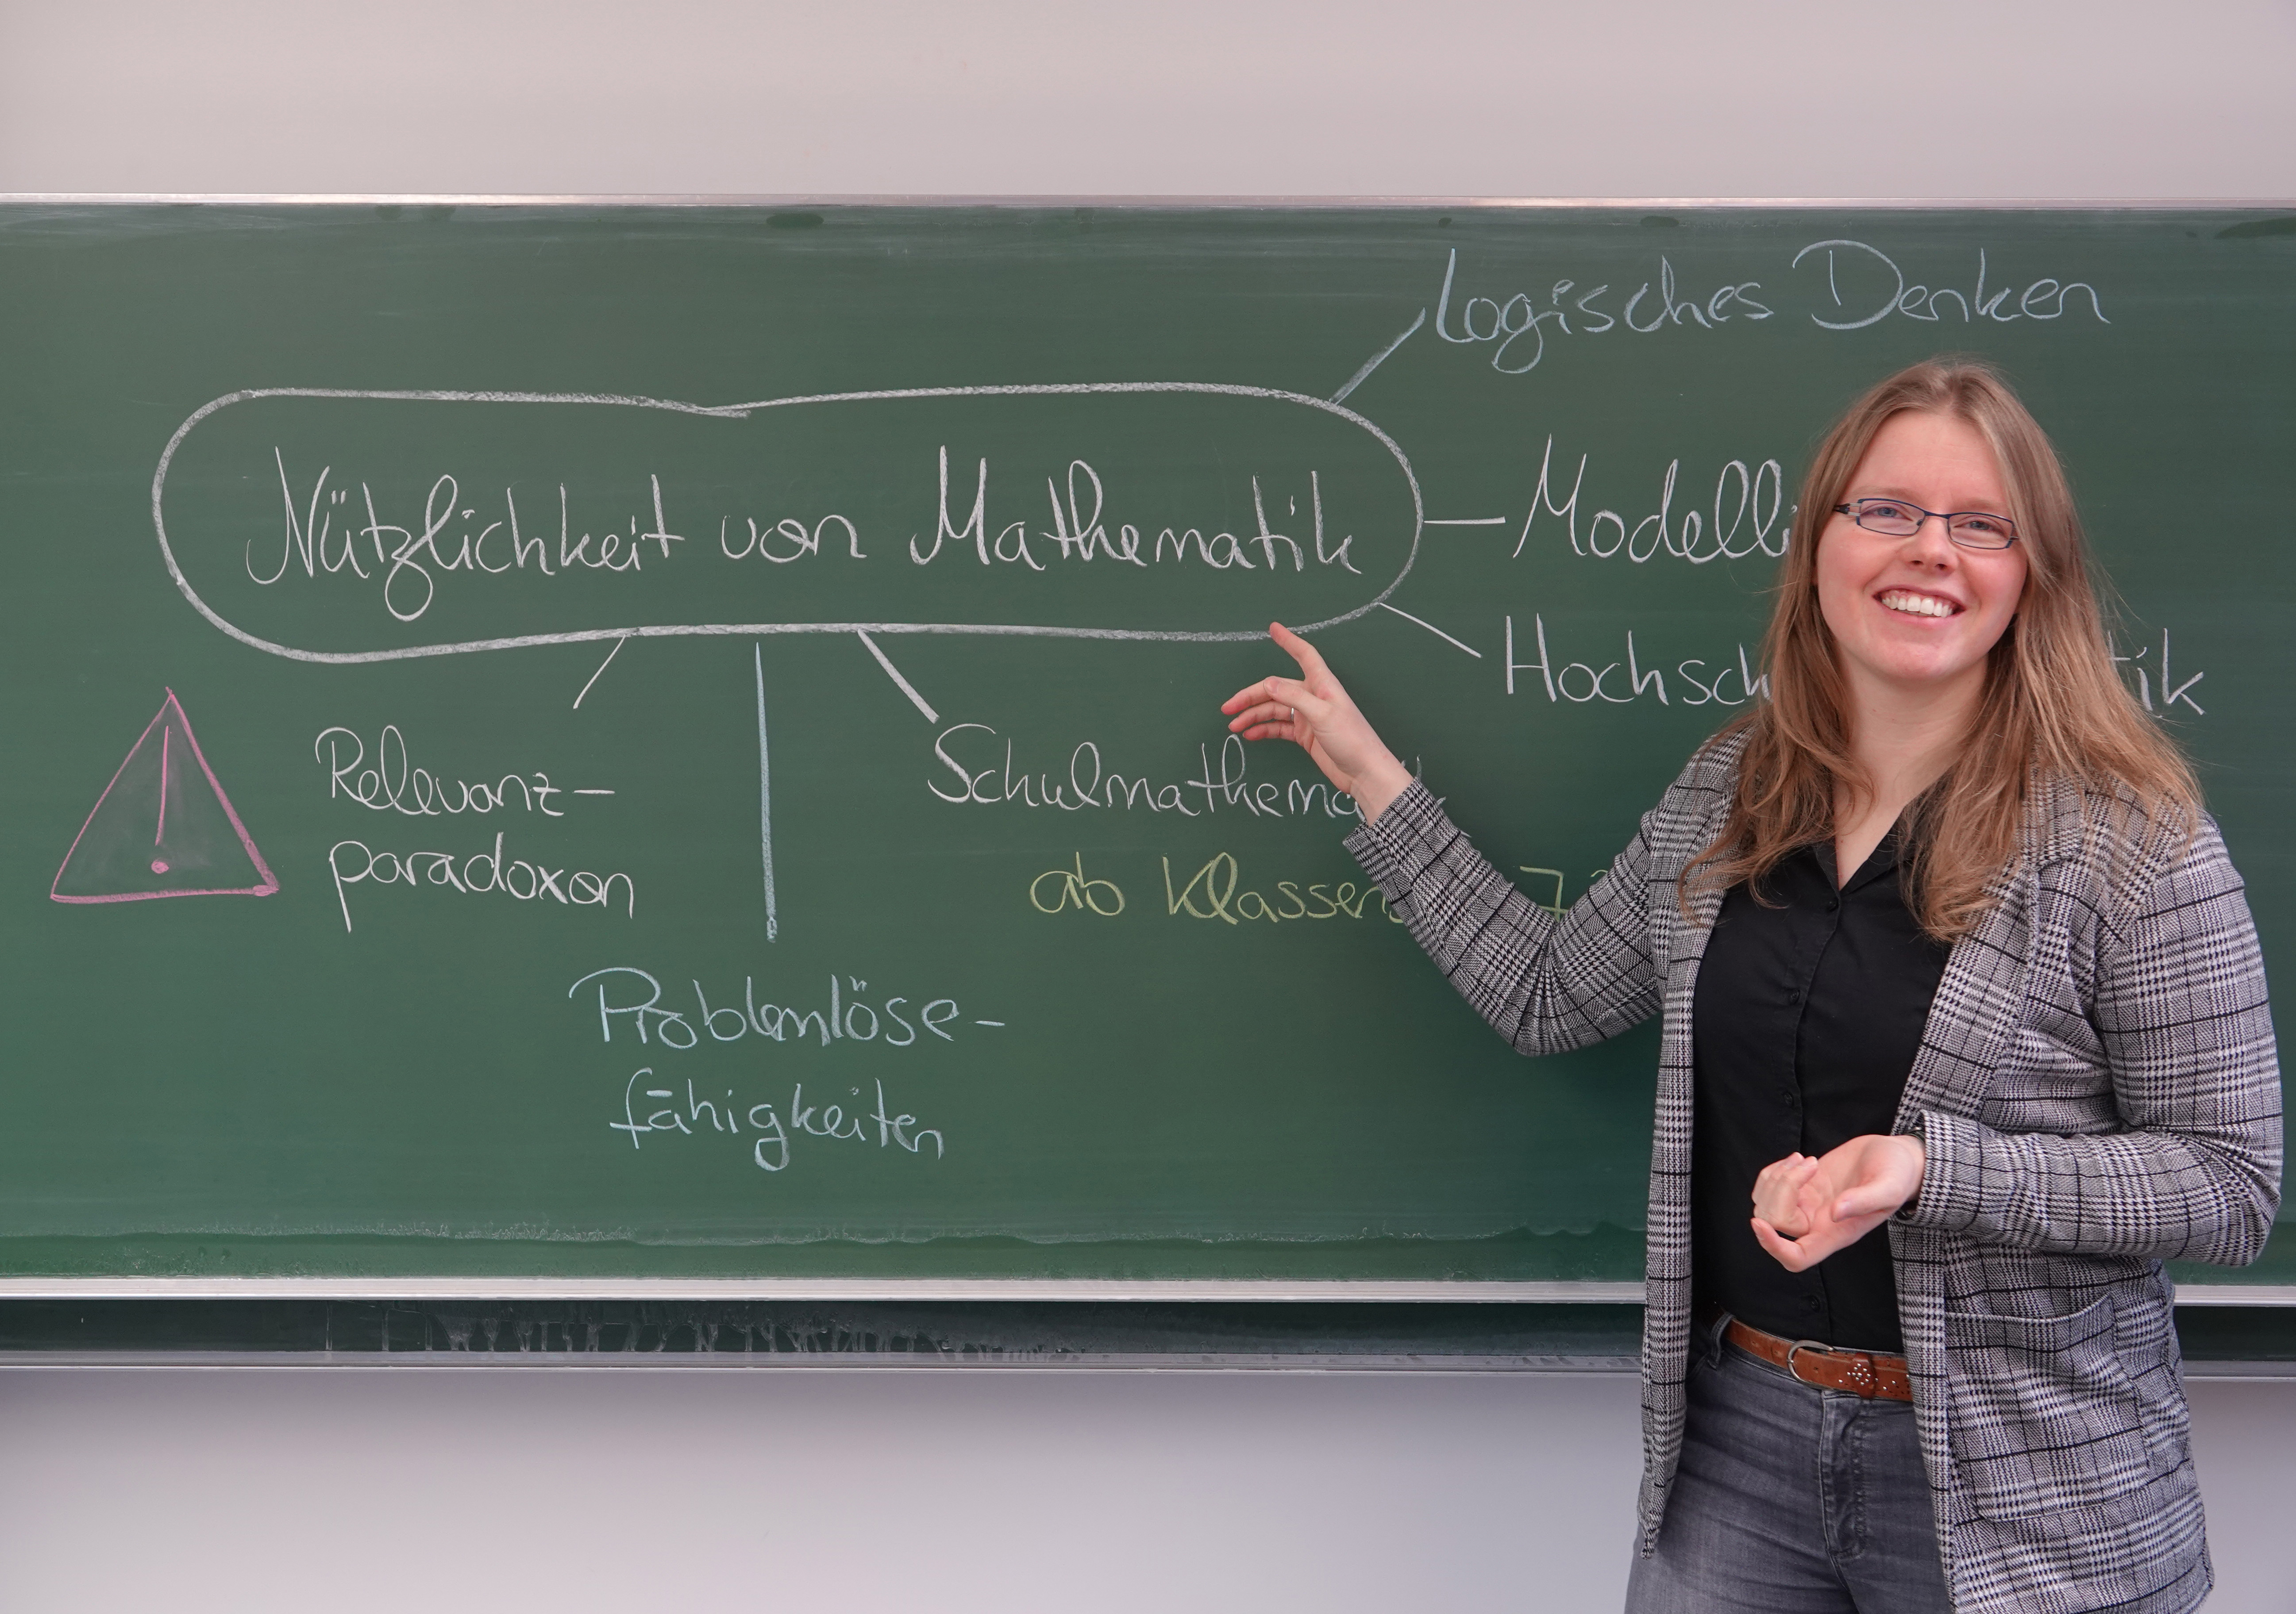 Logisches Denken
Nützlichkeit von Mathematik
Modelli
Hochsch tik
Relevanz-
paradoxon
Schulmathematik
ab Klassens 7?
Problemlöse-
fähigkeiten